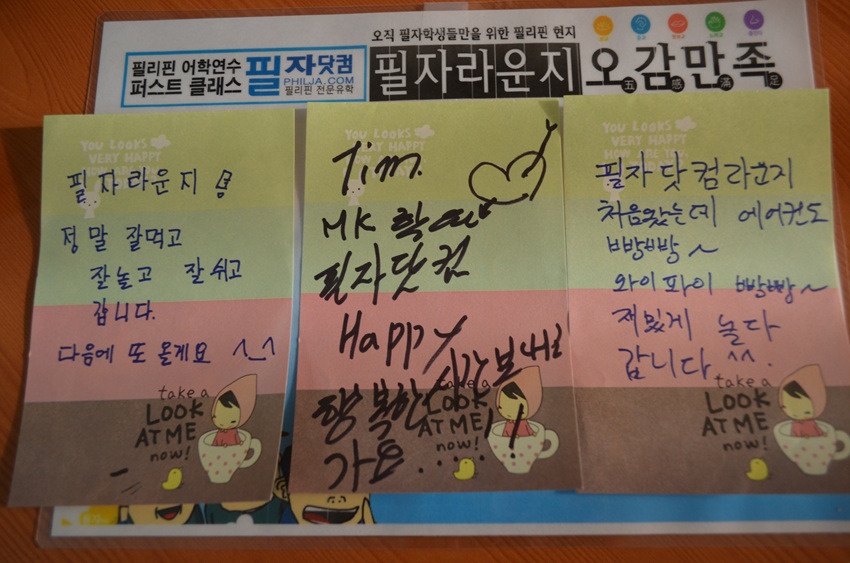 오직 필자학생들만을 위한 필리핀 현지
필리핀 어학연수
퍼스트 클래스
필자닷컴
PHILJA.COM
필리핀 전문유학
필자라운지
오감만족
五感滿足
YOU LOOKS
VERY HAPPY
필자라운지
정말 잘먹고
잘놀고 잘쉬고
갑니다.
다음에 또 올게요 ^_^
take a
LOOK
AT ME
now!
YOU LOOKS
VERY HAPPY
Tim.
MK
필자닷컴
Happy
행복한 시간 보내고
가요......!!
take a
LOOK
AT ME
now!
YOU LOOKS
VERY HAPPY
HOW ARE YOU
필자닷컴라운지
처음왔는데 에어컨도
빵빵~
와이파이 빵빵~
재밌게 놀다
갑니다 ^^.
take a
LOOK
AT ME
now!